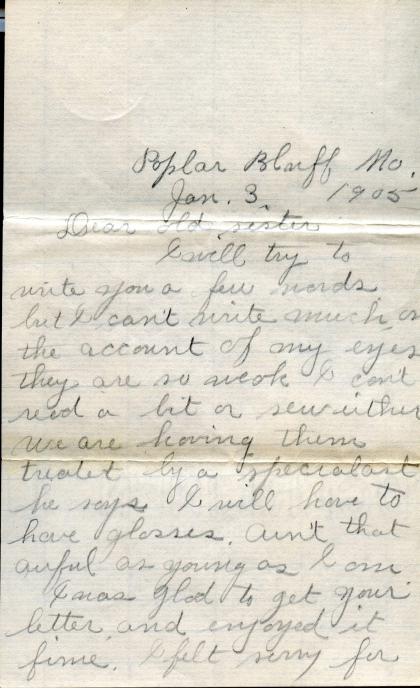 Poplar Bluff Mo.
Jan. 3, 1905
Dear old sister
I will try to
write you a few words
but I can't write much on
the account of my eyes
they are so weak I can't
read a bit or sew either
we are having them
treatet by a specialast
he says I will have to
have glasses. ain't that
awful as young as I am.
I was glad to get your
letter and enjoyed it
fine. I felt sorry for